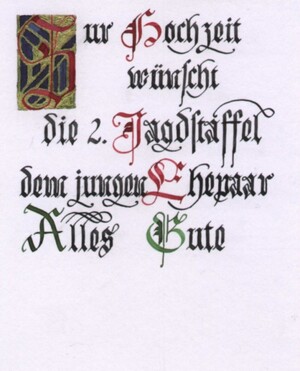 Zur Hochzeit
wünscht
die 2. Jagdstaffel
dem jungen Ehepaar
Alles Gute